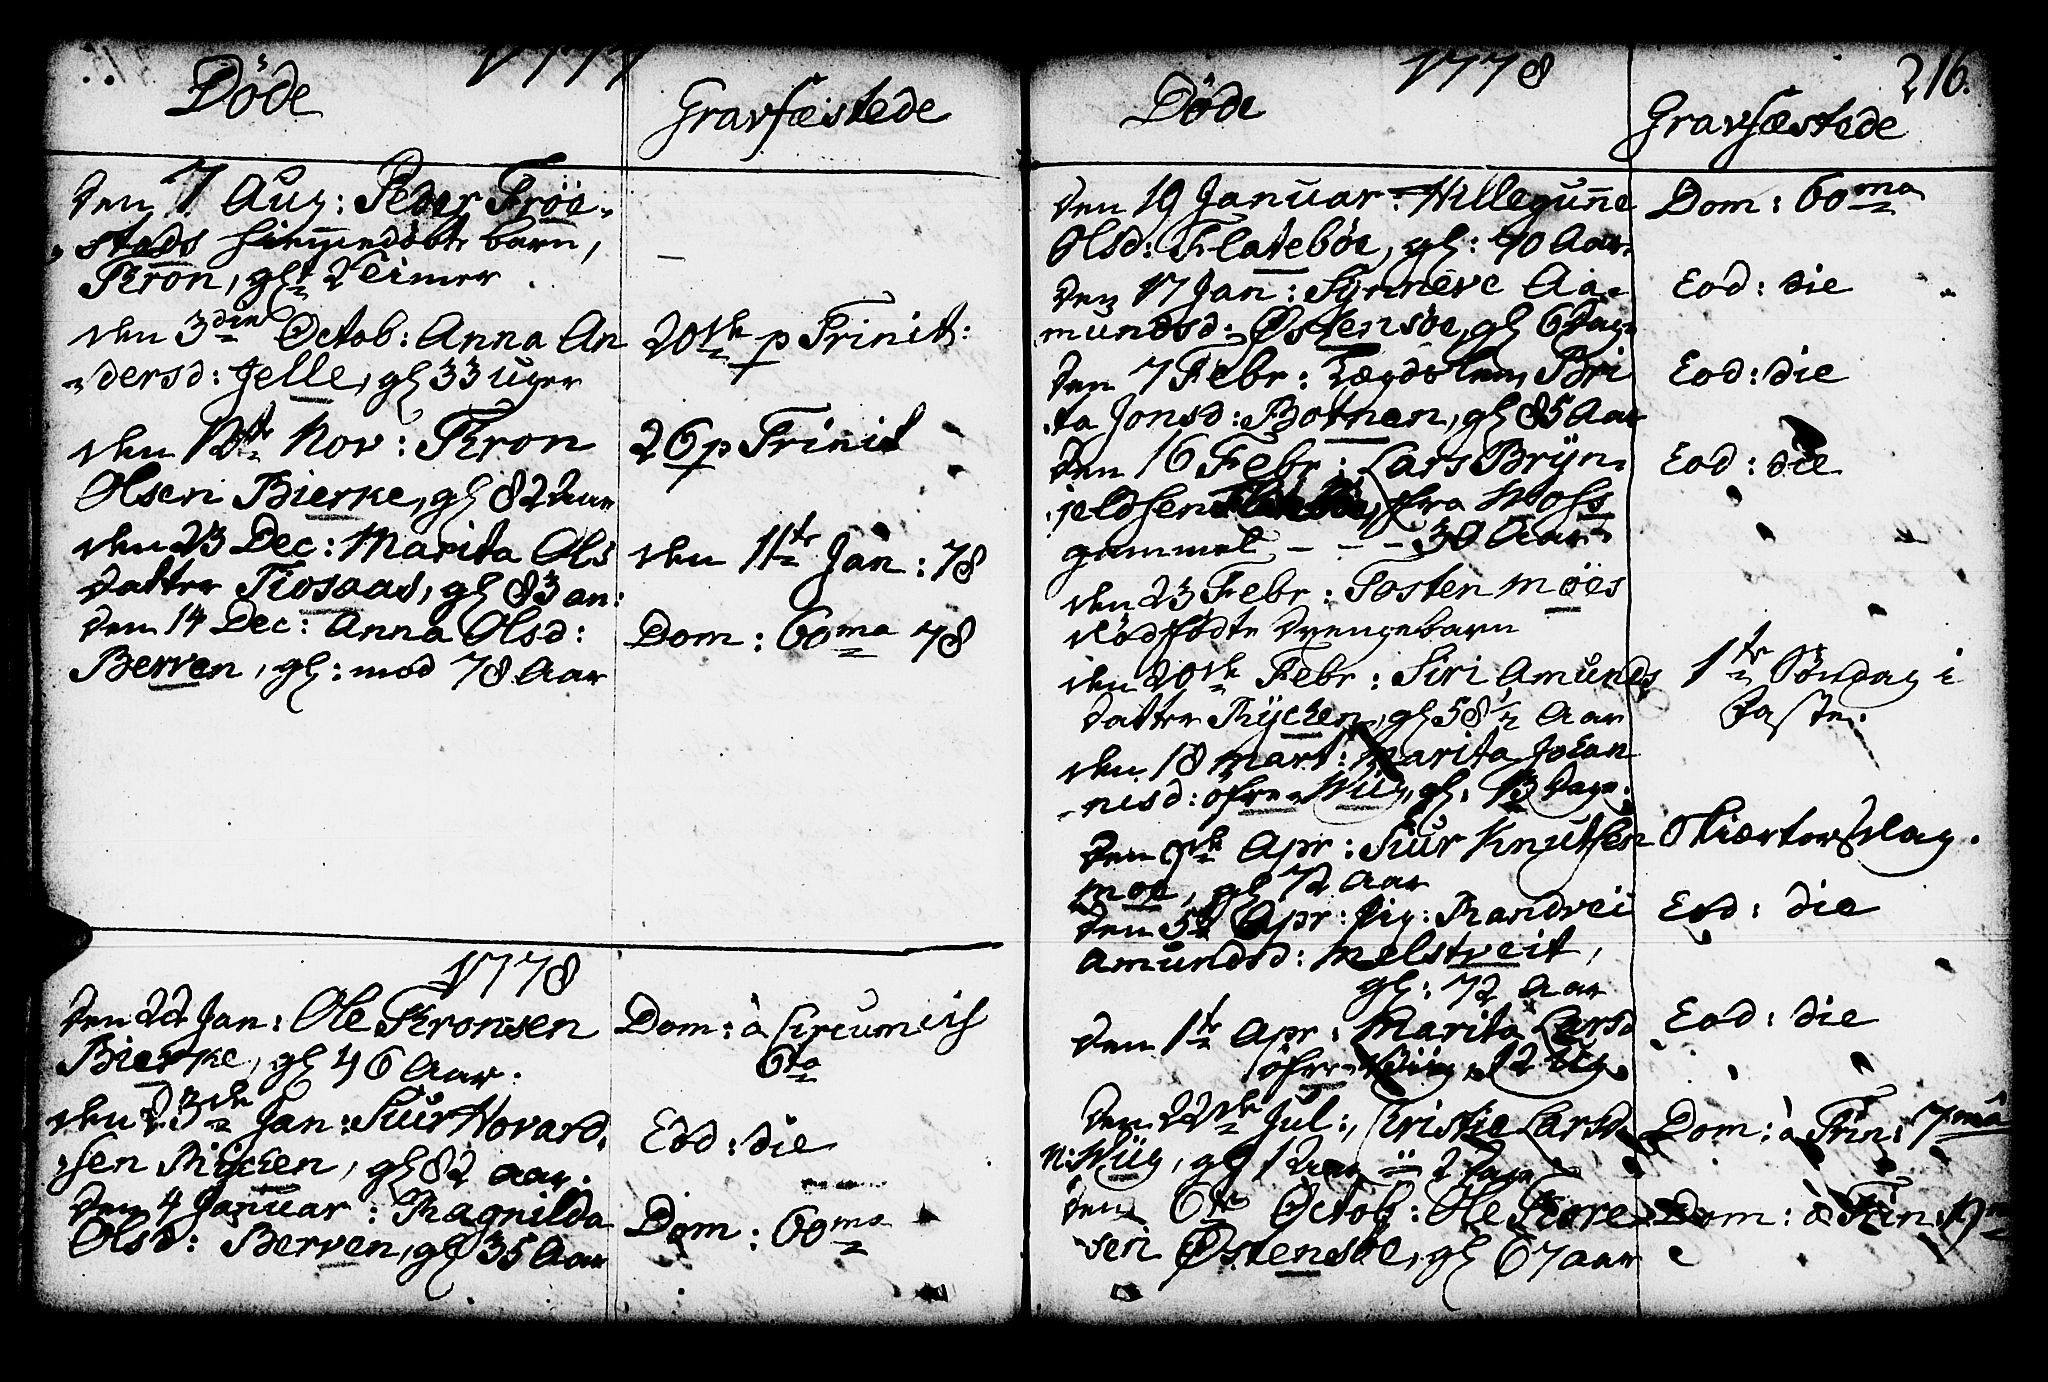 1777
Døde
Gravfæstede
den 7 Aug: Peder Trøe-
stads hiemmedøbte barn,
Thron, gl. 2 Timer
den 3die Octob: Anna An
dersd: Jelle, gl 33 uger
20de p Trinit:
den 12te Nov: Thron
Olsen Bierke, gl 82 Aar
26 p Trinit
den 23 Dec: Marita Ols
datter Tiosaas, gl 83 an:
den 11te Jan: 78
den 14 Dec: Anna Olsd:
Berven, gl: mod 78 Aar
Dom: 60ma 78
1778
den 22 Jan: Ole Thronsen
Bierke, gl 46 Aar.
Dom: à Circumcis
6ta
den 23de Jan: Siur Hovard
sen Rychen, gl 82 aar.
Eod: die
den 4 Januar: Ragnilda
Olsd: Berven, gl 35 Aar
Dom: 60ma
1778
216.
Døde
Gravfæstede
den 19 Januar: Hillegunne
Olsd: Flatebøe, gl: 70 Aar
Dom: 60ma
den 17 Jan: Synneve Aa-
mundsd: Østensøe, gl 6 Dage
Eod: die
den 7 Febr: Lægdslem Bri
ta Jonsd: Botnen, gl 85 Aar
Eod: die
den 16 Febr: Lars Bryn-
jeldsen fra Moss
gammel - - - 30 Aar
Eod: die
den 23 Febr: Tosten Møes
dødfødte drengebarn
den 20de Febr: Siri Amunds
datter Rychen, gl 58 1/2 Aar
1te Søndag i
Faste.
den 18 Mart: Marita Johan
nisd: øfre Wiig, gl. 13 Dage.
den 9de Apr: Siur Knutsen
Moe, gl 72 Aar
Skiertorsdag.
den 5te Apr: pig: Randvei
Amundsd: Melstveit,
gl: 72 Aar
Eod: die
den 1te Apr: Marita Larsd
øfre Wiig 12 Ug.
Eod: die
den 22de Jul: Kristie Larsd
N: Wiig, gl 1 Aar 2 Dage
Dom: à Trin: 7ma
den 6te Octob: Ole Thore
sen Østensøe, gl 67 aar
Dom: à Trin: